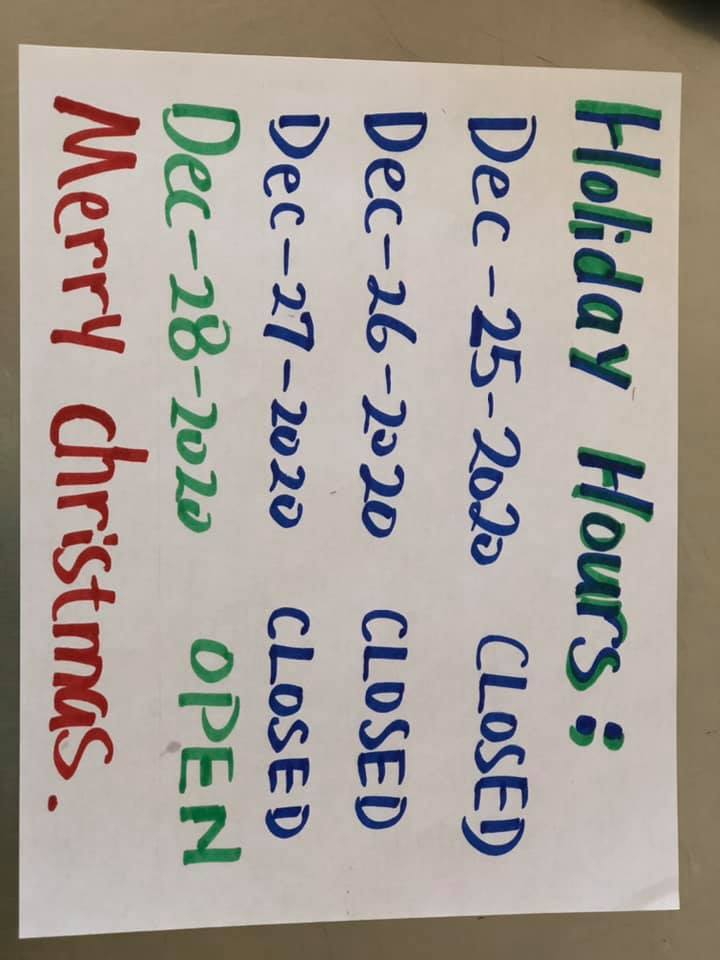 Holiday Hours:
Dec-25-2020 CLOSED
Dec-26-2020 CLOSED
Dec-27-2020 CLOSED
Dec-28-2020 OPEN
Merry christmas.